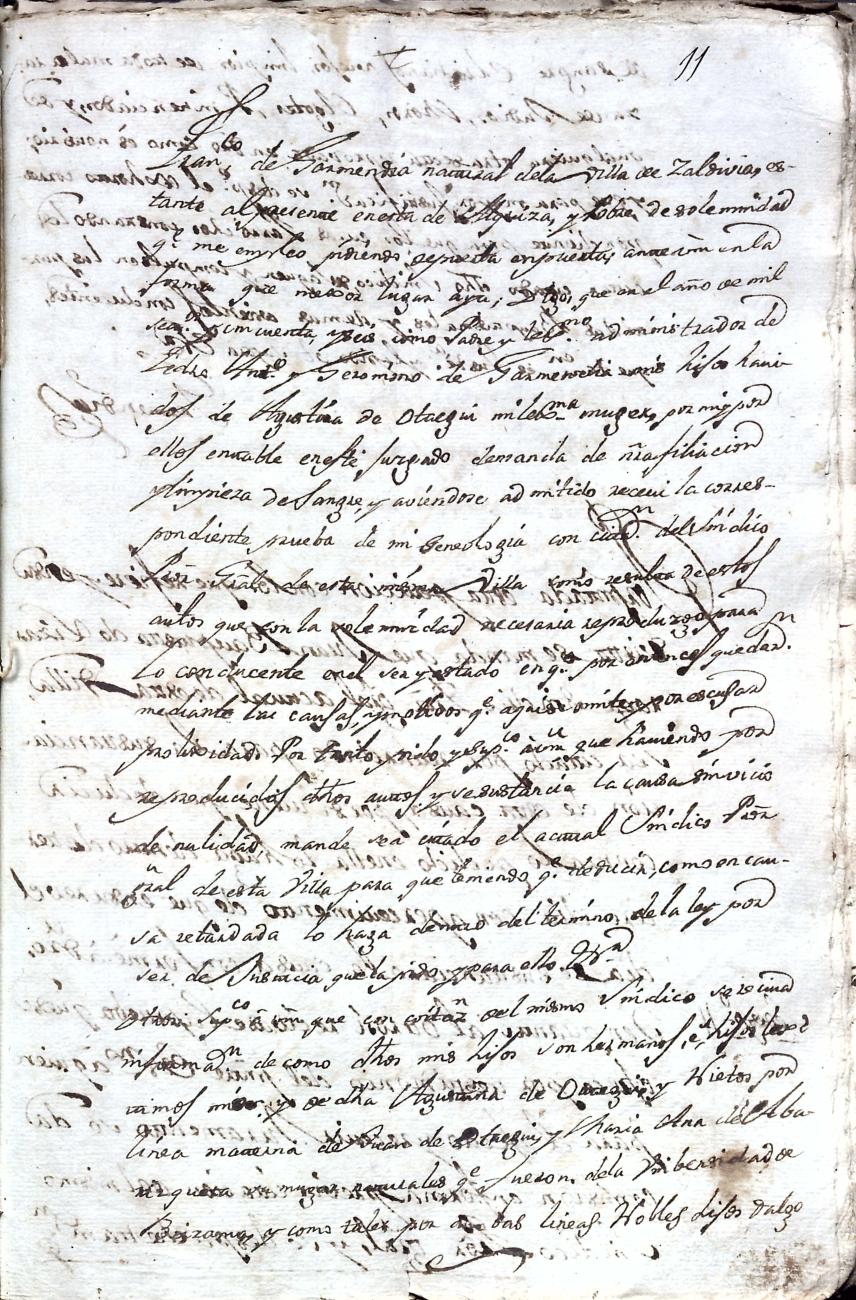 11
Fran.co de Garmendia natural de la Villa de Zaldivia, es-
tante al presente en esta de Aguiza, y Pobre de solemnidad
q.e me empleo pidiendo de puerta en puerta, ante vm en la
forma que mejor lugar aya, Digo, que en el año de mil
setz.os cinquenta, y seis, como Padre y leg.mo administrador de
Pedro Ant.o y Geromono de Garmendia mis hijos havi-
dos de Agustina de Otaegui mi leg.ma muger, por mi y por
ellos entable en este Juzgado demanda de nra filiacion
y limpieza de Sangre, y aviendose admitido receui la corres-
pondiente prueba de mi Geneologia con citaz.n del Sindico
Pror Gral de esta Villa como resulta de estos
autos que con la solemnidad necesaria reproduzgo para
lo conducente en el ser y estado en q.e por entonces quedar.n
mediante las causas, y motibos q.e aqui se omiten por escusar
prolixidad: Por tanto pido y sup.co a vm que haviendo por
reproducidos dhos autos, y se sustancie la causa sin vicio
de nulidad, mande sea citado el actual Sindico Pror
Gral de esta Villa para que teniendo q.e deducir, como en cau-
sa retardada lo haga dentro del termino de la ley por
ser de Justicia que la pido, y para ello &.a
Otrosi sup.co a vm que con citaz.n del mismo Sindico se reciva
informaz.n de como dhos mis hijos son hermanos, e hijos legi-
timos mios, y de dha Agustina de Otaegui, y Nietos por
linea materna de Juan de Otaegui, y Maria Ana de Alba-
su muger naturales q.e fueron de la Vnibersidad de
Beizama, y como tales por ambas lineas Nobles hijos dalgo